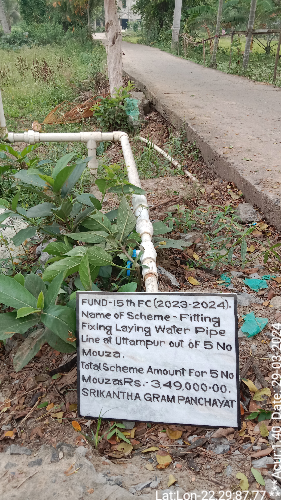 FUND-15th FC (2023-2024).
Name of Scheme - Fitting
Fixing Laying Water Pipe
Line of Uttampur out of 5 No
Mouza.
Total Scheme Amount For 5 No
Mouzas Rs.- 3,49,000=00.
SRIKANTHA GRAM PANCHAYAT
Date: 29-03-2024
Lat:Lon-22.29:87.77